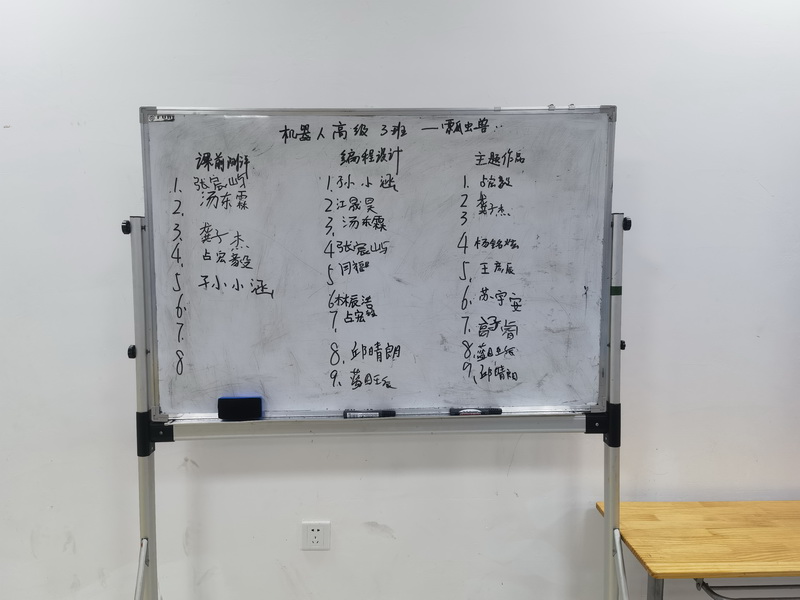 机器人高级 3班 一瓢虫兽
课前测评
1. 张宸屿
2. 汤东霖
3. 龚子杰
4. 占宏毅
5 孙小涵
6.
7.
8
编程设计
1. 孙小涵
2 江晟昊
3. 汤东霖
4 张宸屿
5
6 林辰浩
7. 占宏毅
8. 邱晴朗
9. 蓝日辰
主题作品
1. 占宏毅
2
3 龚子杰
4
5. 王彦辰
6. 苏宇安
7.
8. 蓝日辰
9. 邱晴朗